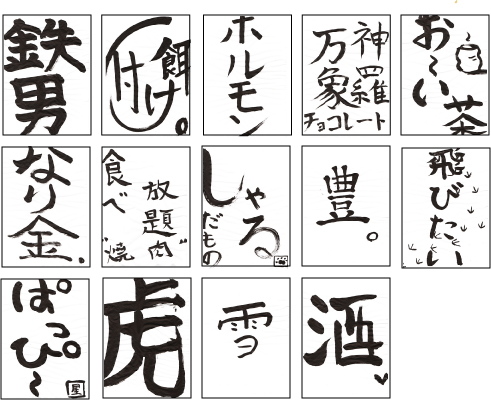 鉄男
餌付け。
ホルモン
神羅
万象
チョコレート
お〜い
茶
なり金.
食べ
放題
"焼肉"
しゃる
だもの
豊。
飛びたい
ぱっぴ〜
星
虎
雪
酒